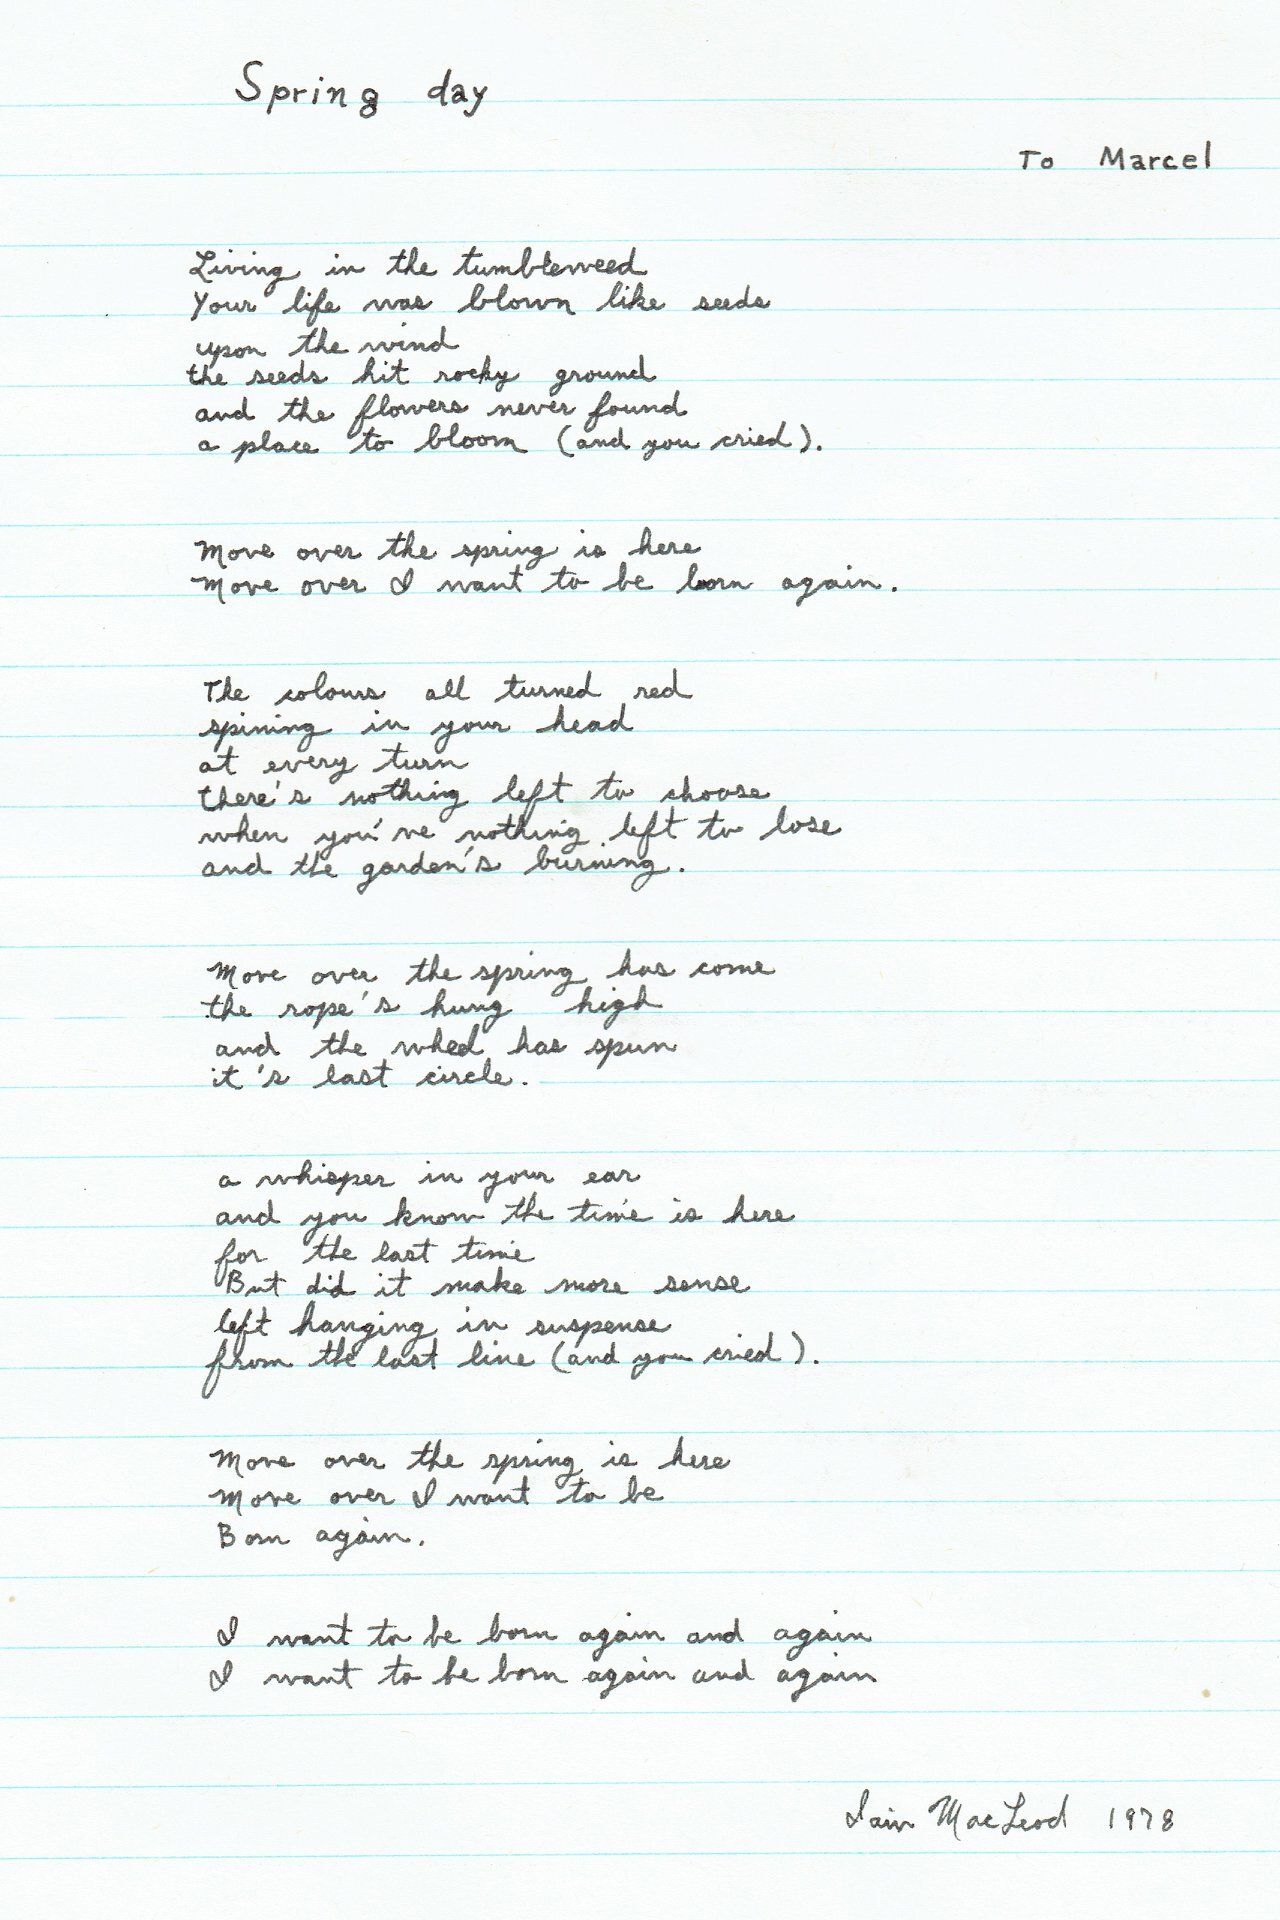 Spring day
To Marcel
Living in the tumbleweed
Your life was blown like seeds
upon the wind
the seeds hit rocky ground
and the flowers never found
a place to bloom (and you cried).
Move over the spring is here
Move over I want to be born again.
The colours all turned red
spining in your head
at every turn
there's nothing left to choose
when you've nothing left to lose
and the garden's burning.
Move over the spring has come
the rope's hung high
and the wheel has spun
it's last circle.
a whisper in your ear
and you know the time is here
for the last time
But did it make more sense
left hanging in suspense
from the last line (and you cried).
Move over the spring is here
Move over I want to be
Born again.
I want to be born again and again
I want to be born again and again
Iain MacLeod 1978